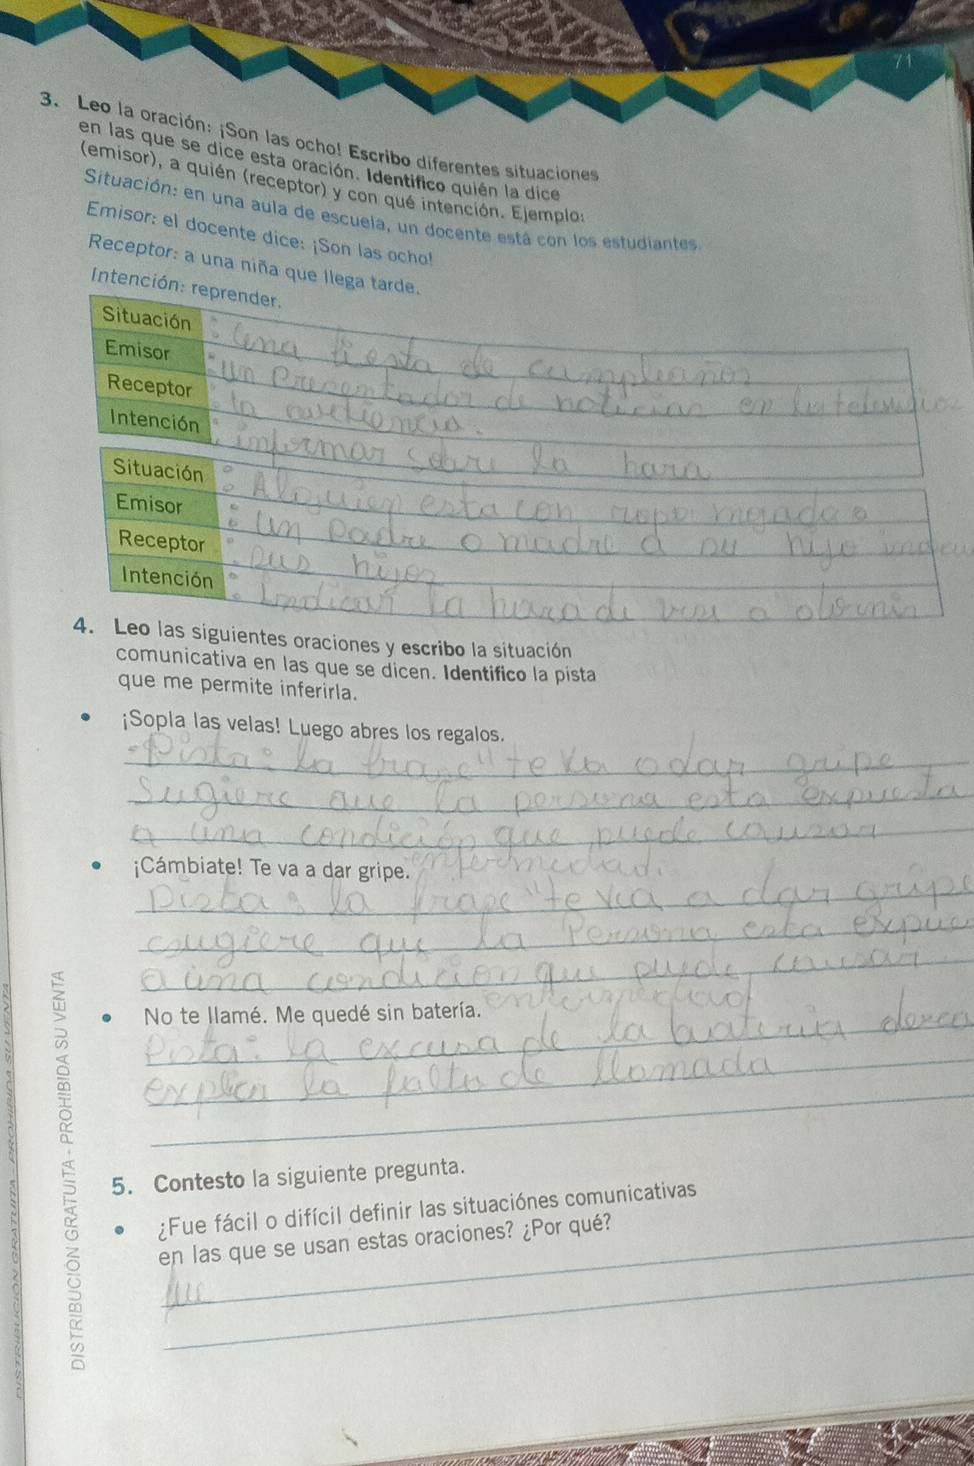 71
3. Leo la oración: ¡Son las ocho! Escribo diferentes situaciones
en las que se dice esta oración. Identifico quién la dice
(emisor), a quién (receptor) y con qué intención. Ejemplo:
Situación: en una aula de escuela, un docente está con los estudiantes.
Emisor: el docente dice: ¡Son las ocho!
Receptor: a una niña que llega tarde.
Intención: reprender.
Situación : Una fiesta de cumpleaños
Emisor : un presentador de noticias en la
Receptor : la audiencia.
Intención : informar sobre la hora
Situación : Alguien esta con
Emisor : un padre o madre a su hijo
Receptor : sus hijos
Intención : Indicar la hora de irse a dormir
4. Leo las siguientes oraciones y escribo la situación
comunicativa en las que se dicen. Identifico la pista
que me permite inferirla.
• ¡Sopla las velas! Luego abres los regalos.
Pista: la frase "te va a dar gripe
Sugiere que la persona esta expuesta
a una condición que puede causar
enfermedad.
• ¡Cámbiate! Te va a dar gripe.
Pista: la frase "te va a dar gripe
sugiere que la persona esta
a una condición que puede causar
enfermedad
• No te llamé. Me quedé sin batería.
Pista: la excusa de la bateria
explica la falta de llamada
5. Contesto la siguiente pregunta.
• ¿Fue fácil o difícil definir las situaciónes comunicativas
en las que se usan estas oraciones? ¿Por qué?
DISTRIBUCIÓN GRATUITA - PROHIBIDA SU VENTA
DISTRIBUCIÓN GRATUITA - PROHIBIDA SU VENTA